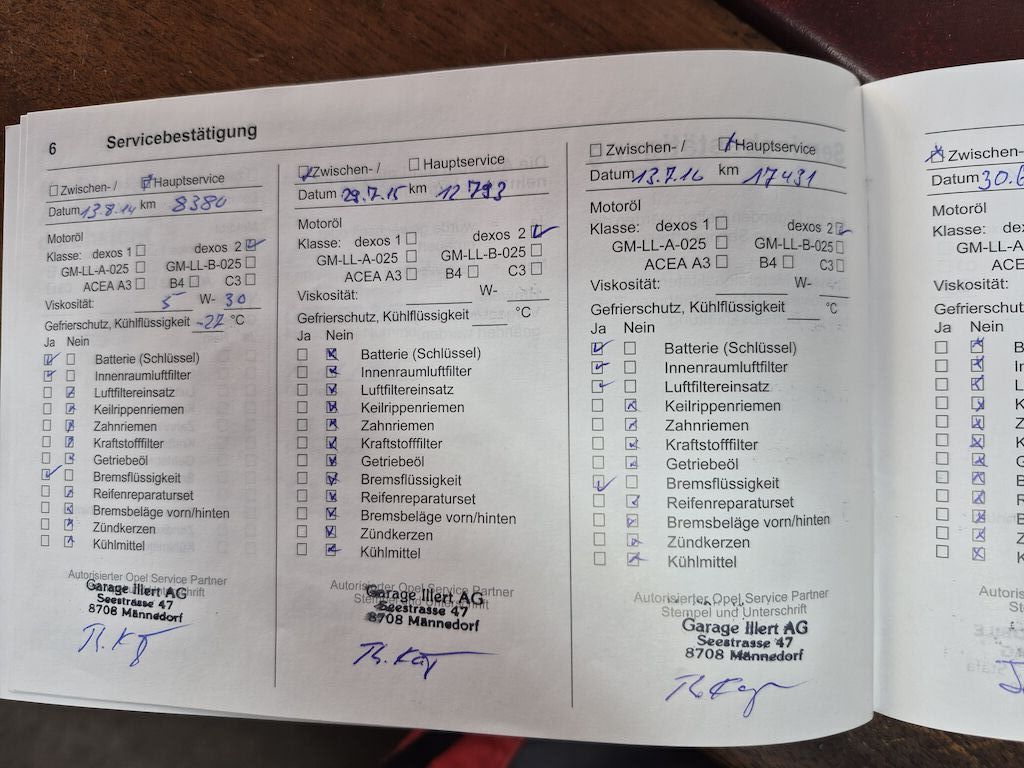 6 Servicebestätigung
Zwischen- / Hauptservice
Datum 13.8.14 km 8380
Motoröl
Klasse: dexos 1 dexos 2
GM-LL-A-025 GM-LL-B-025
ACEA A3 B4 C3
Viskosität: 5 W- 30
Gefrierschutz, Kühlflüssigkeit -27 °C
Ja Nein
Batterie (Schlüssel)
Innenraumluftfilter
Luftfiltereinsatz
Keilrippenriemen
Zahnriemen
Kraftstofffilter
Getriebeöl
Bremsflüssigkeit
Reifenreparaturset
Bremsbeläge vorn/hinten
Zündkerzen
Kühlmittel
Autorisierter Opel Service Partner
Garage Illert AG
Seestrasse 47
8708 Männedorf
Zwischen- / Hauptservice
Datum 29.7.15 km 12793
Motoröl
Klasse: dexos 1 dexos 2
GM-LL-A-025 GM-LL-B-025
ACEA A3 B4 C3
Viskosität: W-
Gefrierschutz, Kühlflüssigkeit °C
Ja Nein
Batterie (Schlüssel)
Innenraumluftfilter
Luftfiltereinsatz
Keilrippenriemen
Zahnriemen
Kraftstofffilter
Getriebeöl
Bremsflüssigkeit
Reifenreparaturset
Bremsbeläge vorn/hinten
Zündkerzen
Kühlmittel
Autorisierter Opel Service Partner
Garage Illert AG
Seestrasse 47
8708 Männedorf
Zwischen- / Hauptservice
Datum 13.7.16 km 17431
Motoröl
Klasse: dexos 1 dexos 2
GM-LL-A-025 GM-LL-B-025
ACEA A3 B4 C3
Viskosität: W-
Gefrierschutz, Kühlflüssigkeit °C
Ja Nein
Batterie (Schlüssel)
Innenraumluftfilter
Luftfiltereinsatz
Keilrippenriemen
Zahnriemen
Kraftstofffilter
Getriebeöl
Bremsflüssigkeit
Reifenreparaturset
Bremsbeläge vorn/hinten
Zündkerzen
Kühlmittel
Autorisierter Opel Service Partner
Stempel und Unterschrift
Garage Illert AG
Seestrasse 47
8708 Männedorf
Zwischen-
Datum 30.6
Motoröl
Klasse: de
GM-LL-A
ACE
Viskosität:
Gefrierschutz
Ja Nein
B
In
L
K
Z
K
G
B
R
B
Z
K
Autorisi
St